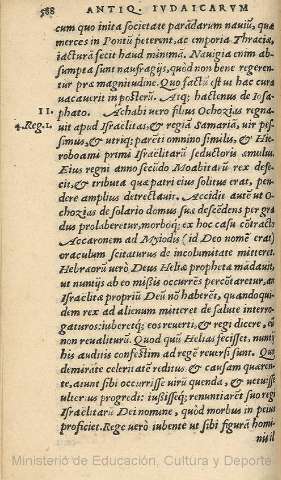 588 ANTIQ. IVDAICARVM
cum quo inita societate paradarum nauiū, quæ
merces in Pontū peterent, ac emporia Thraciæ,
iacturā fecit haud minimā. Nauigia enim ab-
sumpta sunt naufragijs, quòd non bene regeren-
tur præ magnitudine. Quo factū est ut hac cura
uacauerit in posterū. Atq; hactenus de Iosa-
phato.
11. Achabi uero filius Ochozias regna-
4.Reg.1. uit apud Israëlitas, & regiā Samariā, uir pes-
simus, & utriq; parēti omnino similis, & Hie-
roboami primi Israëlitarū seductoris æmulus.
Eius regni anno secūdo Moabitarū rex defe-
cit, & tributa quæ patri eius solitus erat, pen-
dere amplius detrectauit. Accidit autē ut O-
chozias de solario domus suæ descēdens per gra
dus prolaberetur, morboq; ex hoc casu cōtracto
Accaronem ad Myiodis (id Deo nomē erat)
oraculum scitaturus de incolumitate mitteret.
Hebræorū uerò Deus Heliæ prophetæ mādauit,
ut nuntijs ab eo missis occurrēs percōtaretur, an
Israëlitæ propriū Deū nō haberēt, quandoqui-
dem rex ad alienum mitteret de salute interro-
gaturos: iuberetq; eos reuerti, & regi dicere, eū
non reualiturū. Quod quū Helias fecisset, nuntij
his auditis confestim ad regē reuersi sunt. Quo
demirāte celeritatē reditus & causam quæren-
te, aiunt sibi occurrisse uirū quendā, & uetuisse
ulterius progredi: iussisseq; renuntiarēt suo regi
Israëlitarū Dei nomine, quòd morbus in peius
proficiet. Rege uerò iubente ut sibi figurā homi-
nis il
Ministerio de Educación, Cultura y Deporte